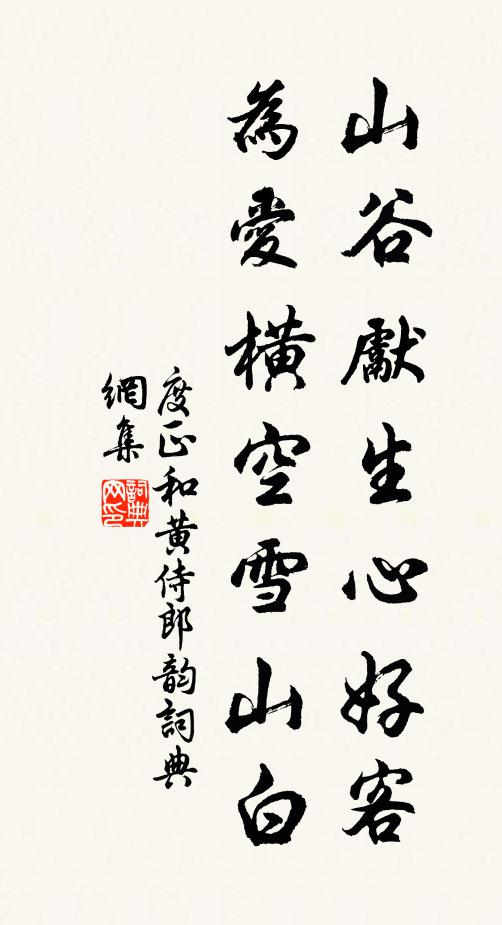 山谷獻生心好客
為愛橫空雪山白
度正和黃侍郎韵詞典
網集
詞典網印